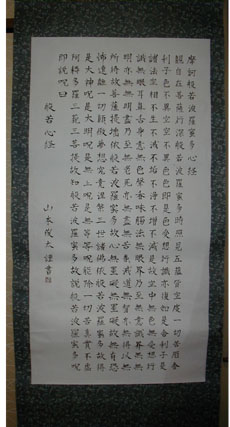 摩訶般若波羅蜜多心経
觀自在菩薩行深般若波羅蜜多時照見五蘊皆空度一切苦厄舍
利子色不異空空不異色色即是空空即是色受想行識亦復如是舍利子是
諸法空相不生不滅不垢不淨不增不減是故空中無色無受想行
識無眼耳鼻舌身意無色聲香味觸法無眼界乃至無意識界無無
明亦無無明盡乃至無老死亦無老死盡無苦集滅道無智亦無得以無
所得故菩提薩埵依般若波羅蜜多故心無罣礙無罣礙故無有恐
怖遠離一切顛倒夢想究竟涅槃三世諸佛依般若波羅蜜多故得
是大神呪是大明呪是無上呪是無等等呪能除一切苦真實不虛
阿耨多羅三藐三菩提故知般若波羅蜜多故說般若波羅蜜多呪
即說呪曰
般若心経
山本俊太 謹書